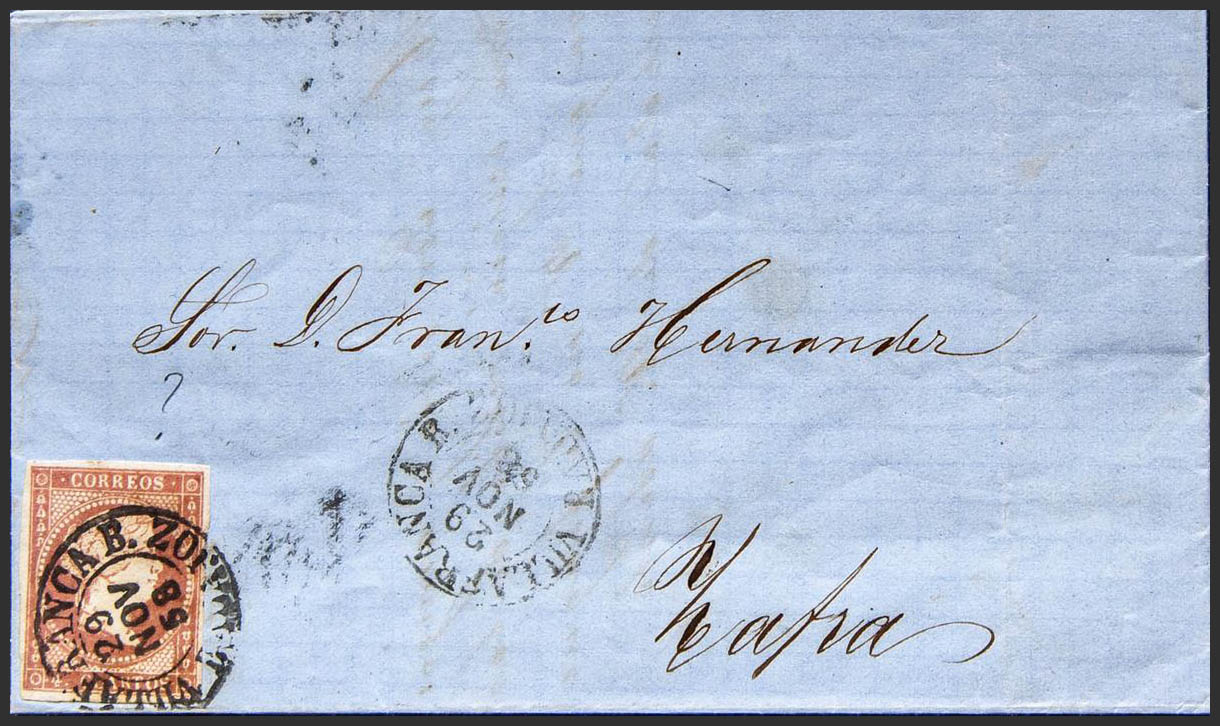 Sor. D. Fran.co Hernandez
VILLAFRANCA B.
29
NOV
58
CORREOS
FRANCA B.
29
NOV
58
Zafra